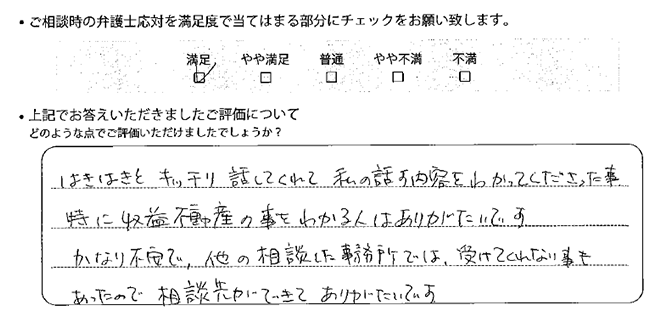 • ご相談時の弁護士応対を満足度で当てはまる部分にチェックをお願い致します。
満足 やや満足 普通 やや不満 不満
• 上記でお答えいただきましたご評価について
どのような点でご評価いただけましたでしょうか？
はきはきと キッチリ 話してくれて 私の話す内容をわかってくださった事
特に収益不動産の事をわかる人はありがたいです
かなり不安で、他の相談した事務所では、受けてくれない事も
あったので 相談先ができて ありがたいです